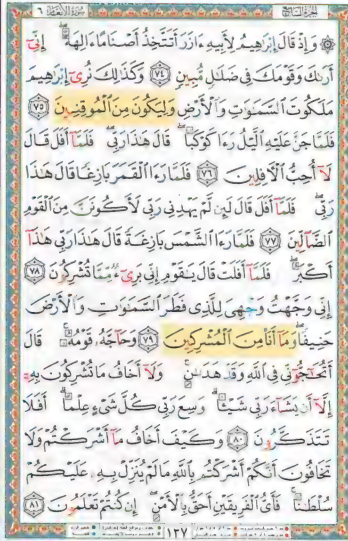 الجزء السابع سورة الأنعام ٦
۞ وَإِذْ قَالَ إِبْرَٰهِيمُ لِأَبِيهِ ءَازَرَ أَتَتَّخِذُ أَصْنَامًا ءَالِهَةً ۖ إِنِّىٓ
أَرَىٰكَ وَقَوْمَكَ فِى ضَلَٰلٍ مُّبِينٍ ٧٤ وَكَذَٰلِكَ نُرِىٓ إِبْرَٰهِيمَ
مَلَكُوتَ ٱلسَّمَٰوَٰتِ وَٱلْأَرْضِ وَلِيَكُونَ مِنَ ٱلْمُوقِنِينَ ٧٥
فَلَمَّا جَنَّ عَلَيْهِ ٱلَّيْلُ رَءَا كَوْكَبًا ۖ قَالَ هَٰذَا رَبِّى ۖ فَلَمَّآ أَفَلَ قَالَ
لَآ أُحِبُّ ٱلْءَافِلِينَ ٧٦ فَلَمَّا رَءَا ٱلْقَمَرَ بَازِغًا قَالَ هَٰذَا
رَبِّى ۖ فَلَمَّآ أَفَلَ قَالَ لَئِن لَّمْ يَهْدِنِى رَبِّى لَأَكُونَنَّ مِنَ ٱلْقَوْمِ
ٱلضَّآلِّينَ ٧٧ فَلَمَّا رَءَا ٱلشَّمْسَ بَازِغَةً قَالَ هَٰذَا رَبِّى هَٰذَآ
أَكْبَرُ ۖ فَلَمَّآ أَفَلَتْ قَالَ يَٰقَوْمِ إِنِّى بَرِىٓءٌ مِّمَّا تُشْرِكُونَ ٧٨
إِنِّى وَجَّهْتُ وَجْهِىَ لِلَّذِى فَطَرَ ٱلسَّمَٰوَٰتِ وَٱلْأَرْضَ
حَنِيفًا ۖ وَمَآ أَنَا۠ مِنَ ٱلْمُشْرِكِينَ ٧٩ وَحَآجَّهُۥ قَوْمُهُۥ ۚ قَالَ
أَتُحَٰٓجُّوٓنِّى فِى ٱللَّهِ وَقَدْ هَدَىٰنِ ۚ وَلَآ أَخَافُ مَا تُشْرِكُونَ بِهِۦٓ
إِلَّآ أَن يَشَآءَ رَبِّى شَيْـًٔا ۗ وَسِعَ رَبِّى كُلَّ شَىْءٍ عِلْمًا ۗ أَفَلَا
تَتَذَكَّرُونَ ٨٠ وَكَيْفَ أَخَافُ مَآ أَشْرَكْتُمْ وَلَا
تَخَافُونَ أَنَّكُمْ أَشْرَكْتُم بِٱللَّهِ مَا لَمْ يُنَزِّلْ بِهِۦ عَلَيْكُمْ
سُلْطَٰنًا ۚ فَأَىُّ ٱلْفَرِيقَيْنِ أَحَقُّ بِٱلْأَمْنِ ۖ إِن كُنتُمْ تَعْلَمُونَ ٨١
١٣٧